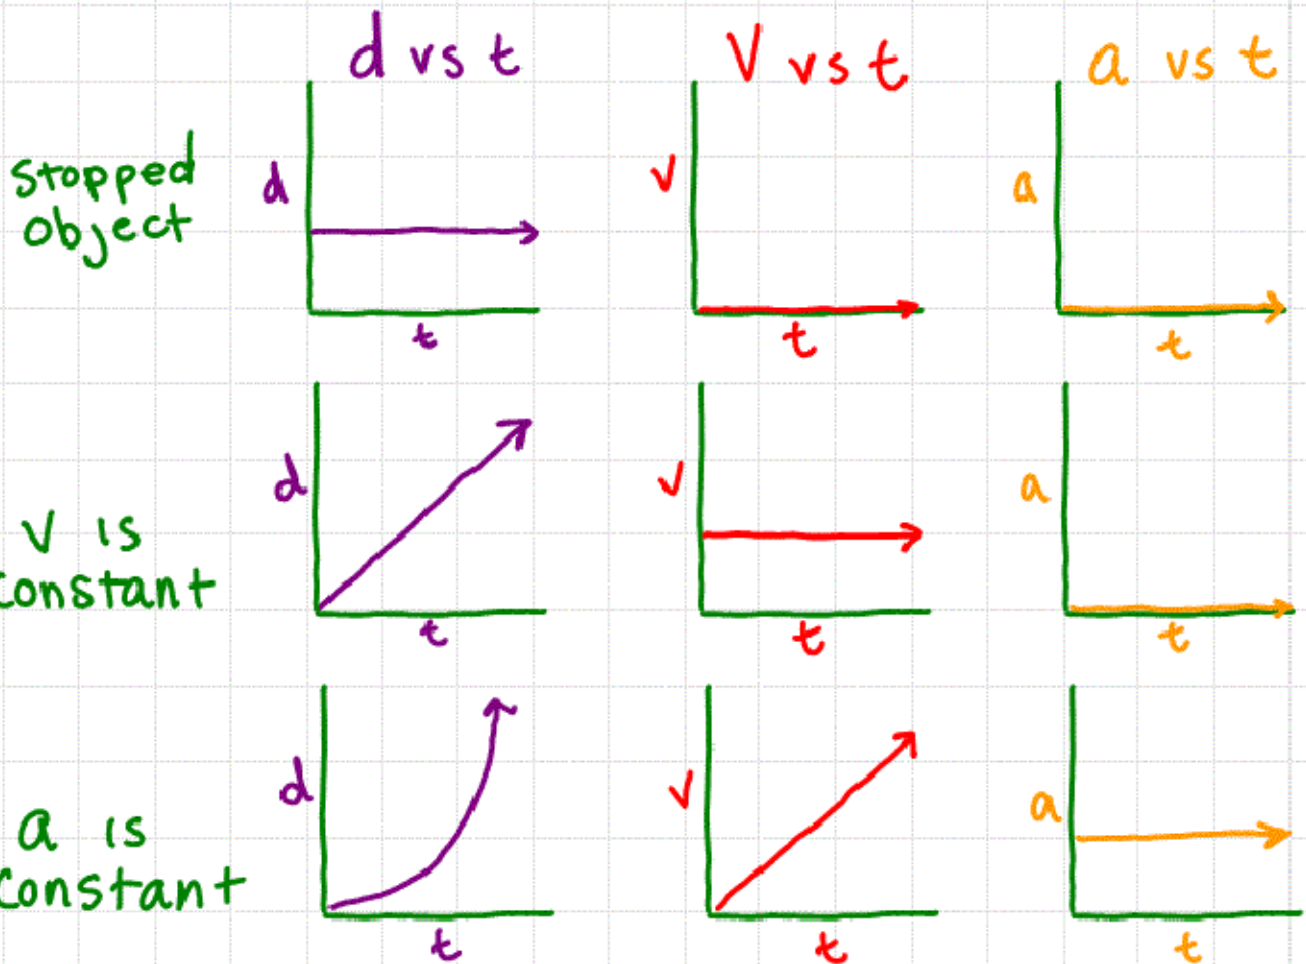 d vs t
V vs t
a vs t
Stopped
Object
d
t
v
t
a
t
V is
Constant
d
t
v
t
a
t
a is
Constant
d
t
v
t
a
t